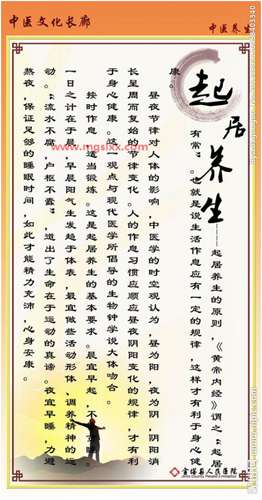 中医文化长廊
中医养生
起居养生
——起居养生的原则，《黄帝内经》谓之“起居
有常”。也就是说生活作息应有一定的规律，这样才有利于身心健
康。
昼夜节律对人体的影响，中医学的时空观认为，昼为阳，夜为阴，阴阳消
长呈周而复始的节律变化。人的作息习惯应顺应昼夜阴阳变化的规律，才有利
于身心健康。这一观点与现代医学所倡导的生物钟学说大体吻合。
按时作息，适当锻炼。这是起居养生的基本要求。晨宜早起，不
一日之计在于晨，早晨阳气生发趋于体表，最宜做些活动形体、调养精神的运
动。“流水不腐，户枢不蠹”，道出了生命在于运动的真谛。夜宜早睡，力避
熬夜，保证足够的睡眠时间，如此才能精力充沛，心身安康。
县人民医院